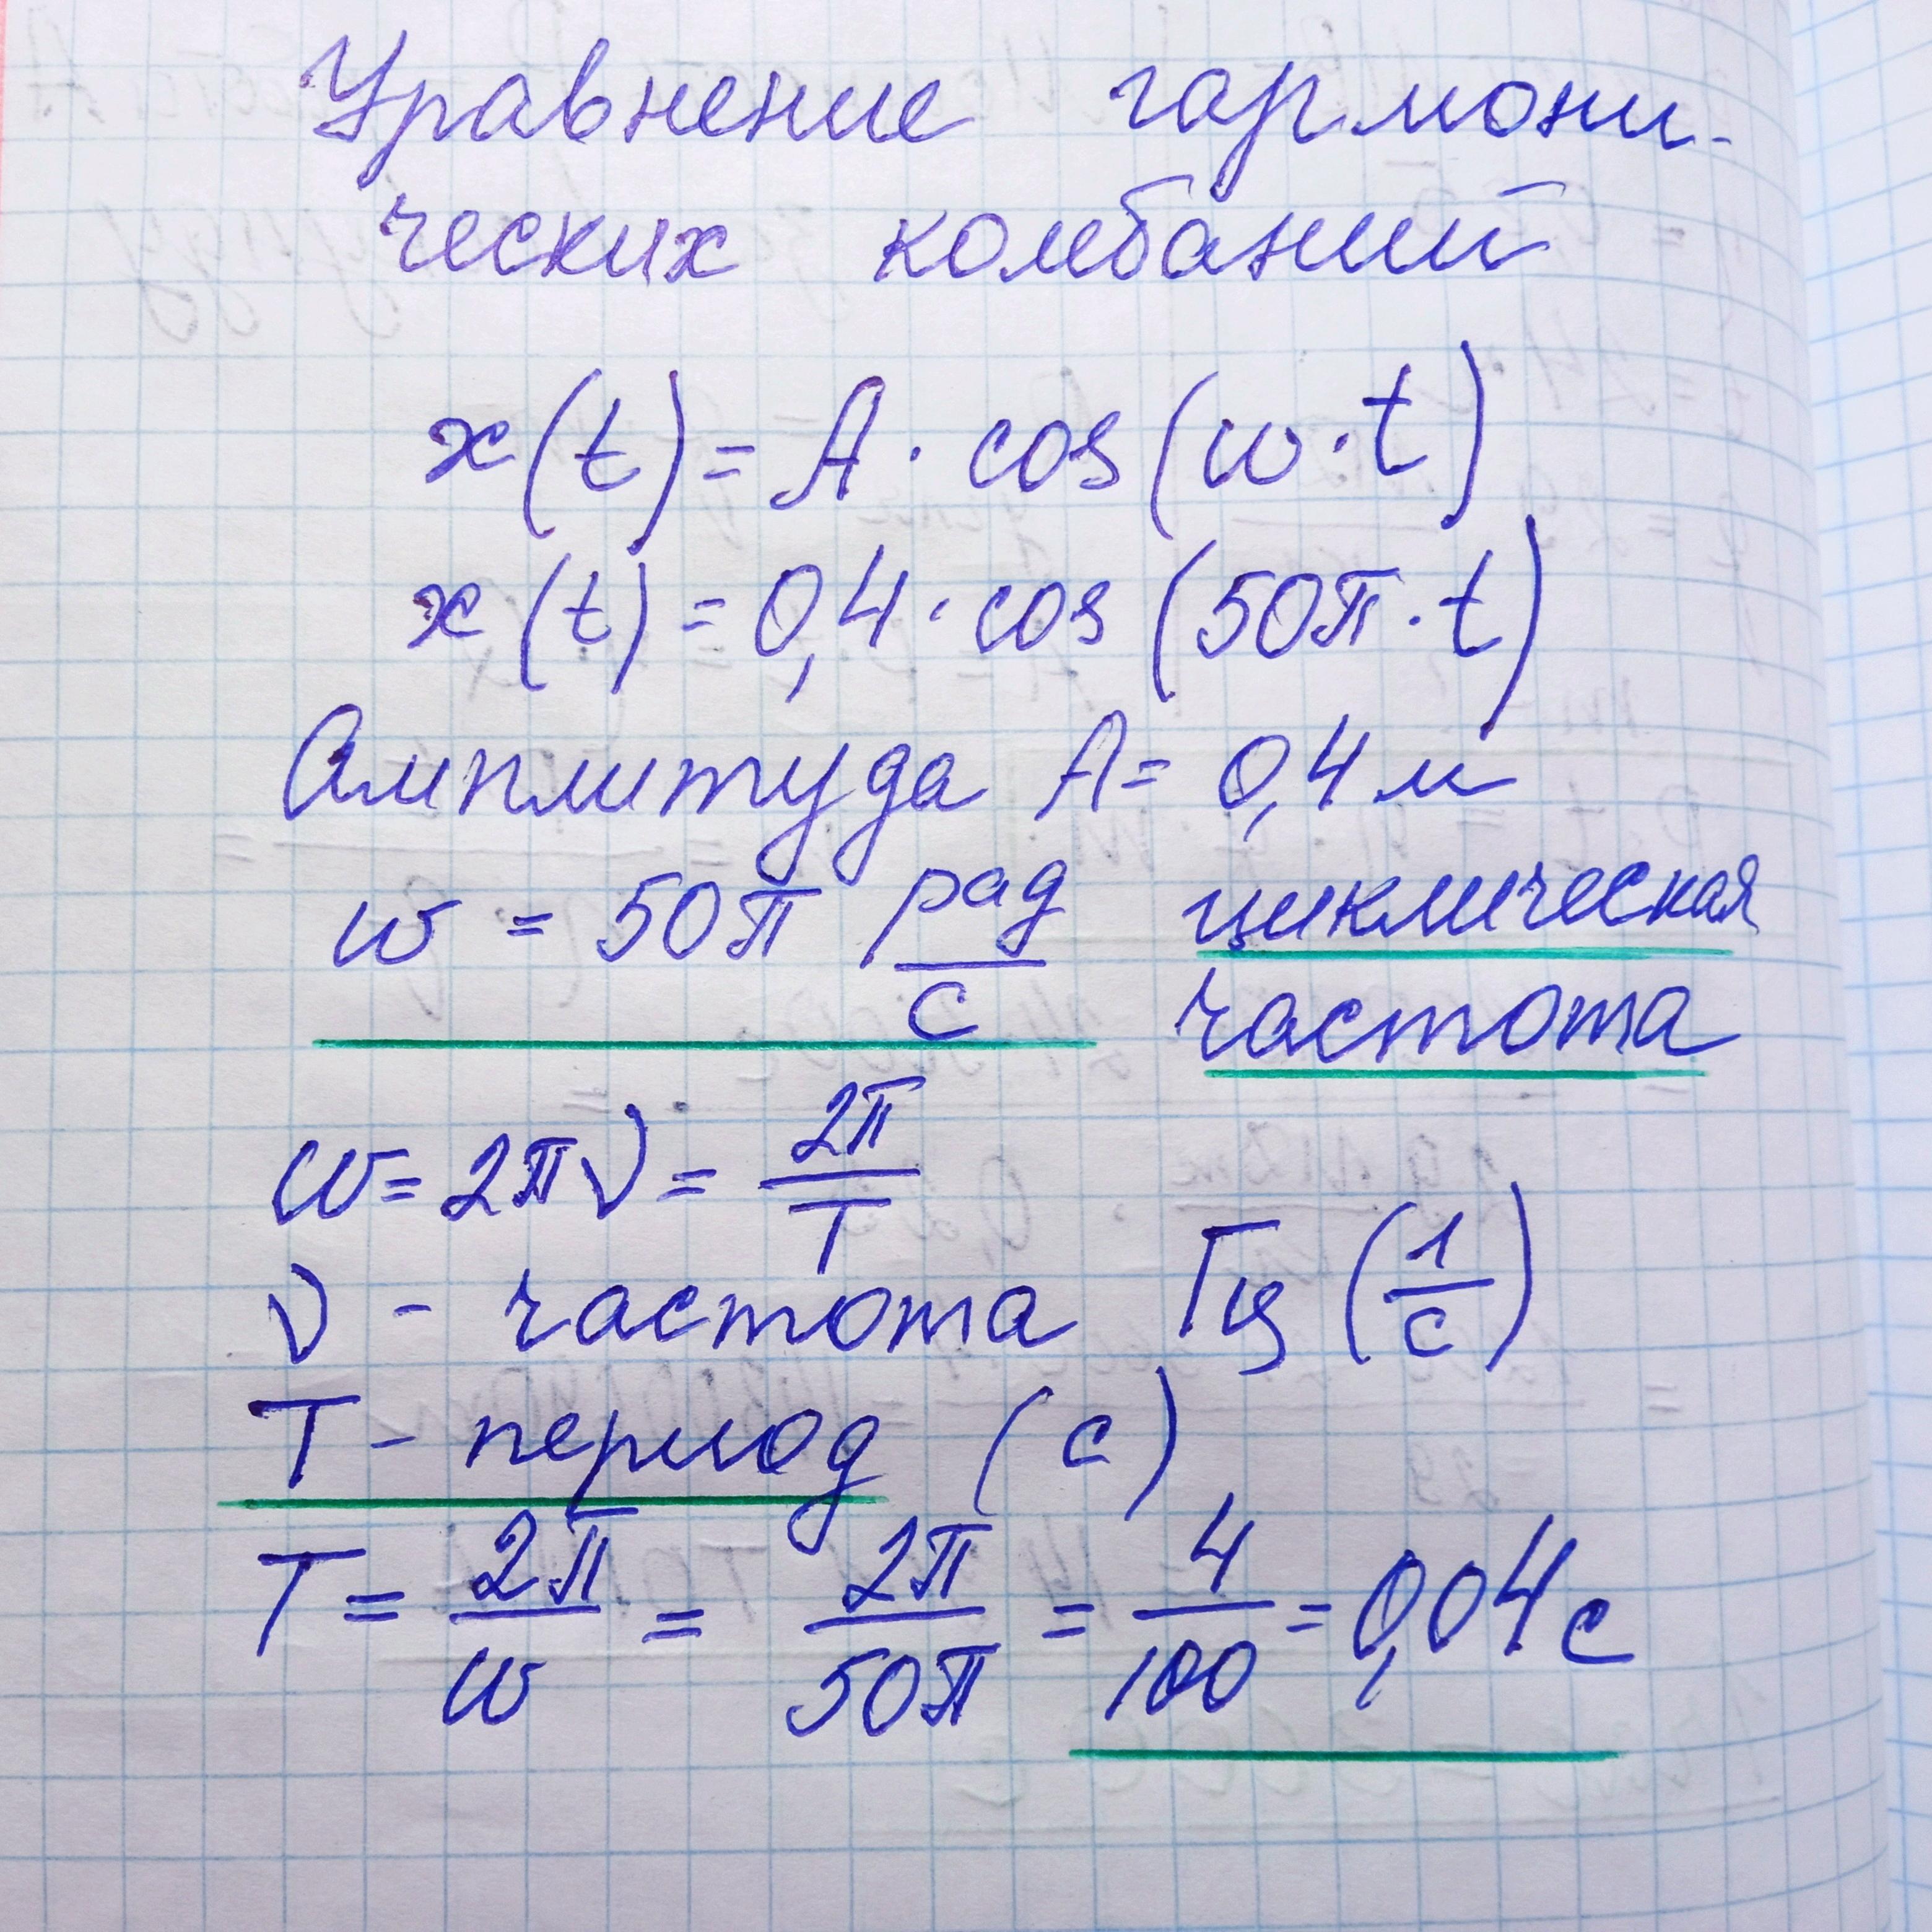 Уравнение гармони-
ческих колебаний
x(t) = A · cos(ω · t)
x(t) = 0,4 · cos(50π · t)
Амплитуда A = 0,4 м
ω = 50π рад/с циклическая
частота
ω = 2πν = 2π/T
ν - частота Гц (1/с)
T - период (с)
T = 2π/ω = 2π/50π = 4/100 = 0,04 с